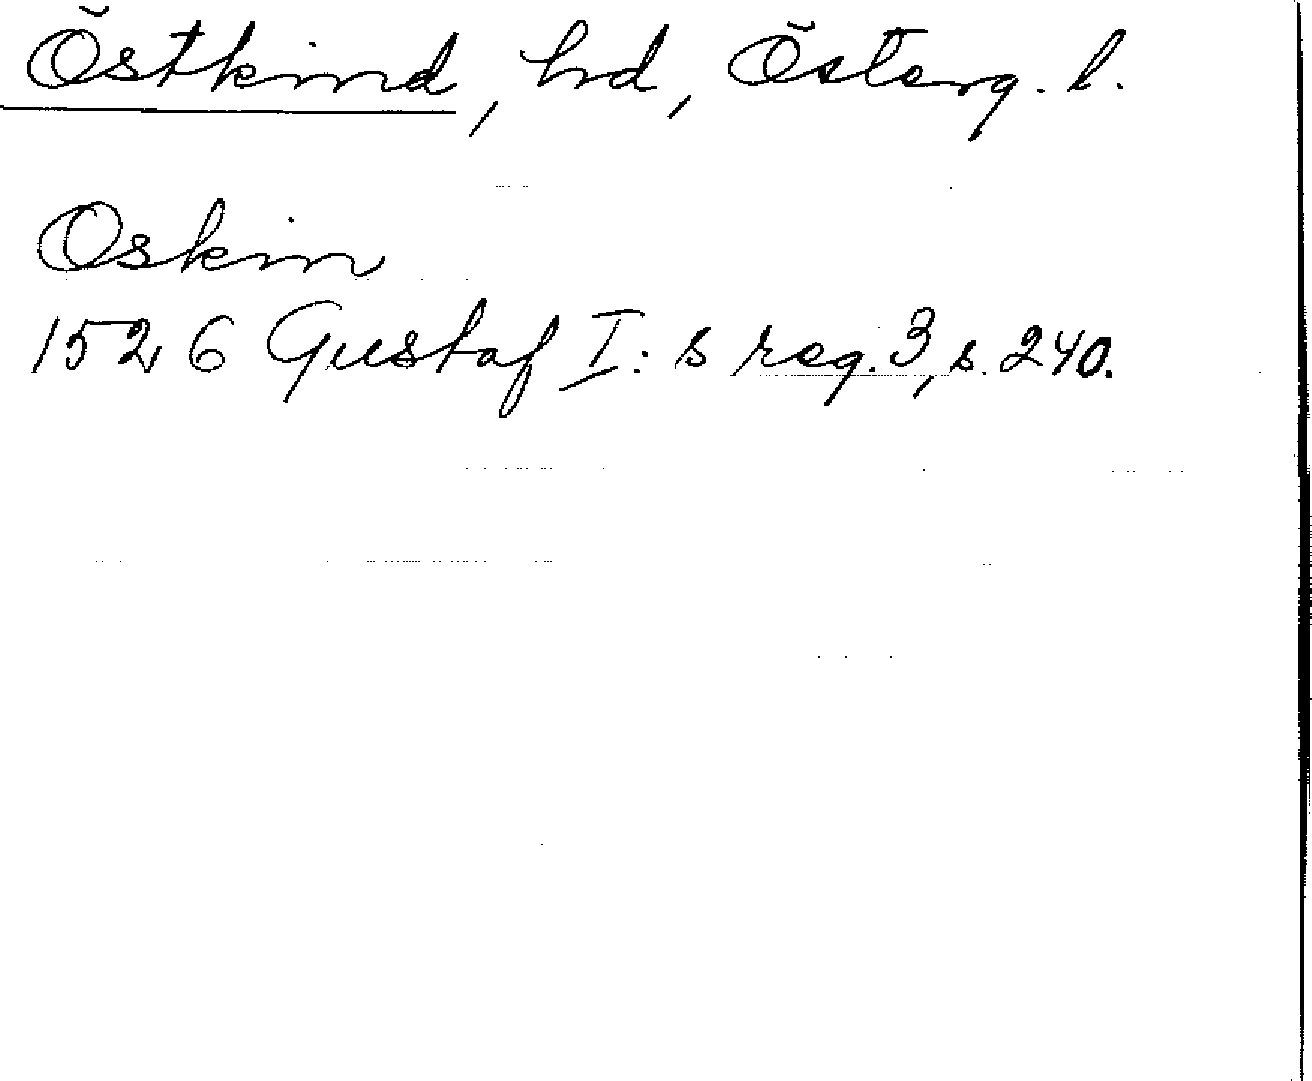 Östkind, hd, Österg. l.
Oskin
1526 Gustaf I:s reg. 3, s. 240.